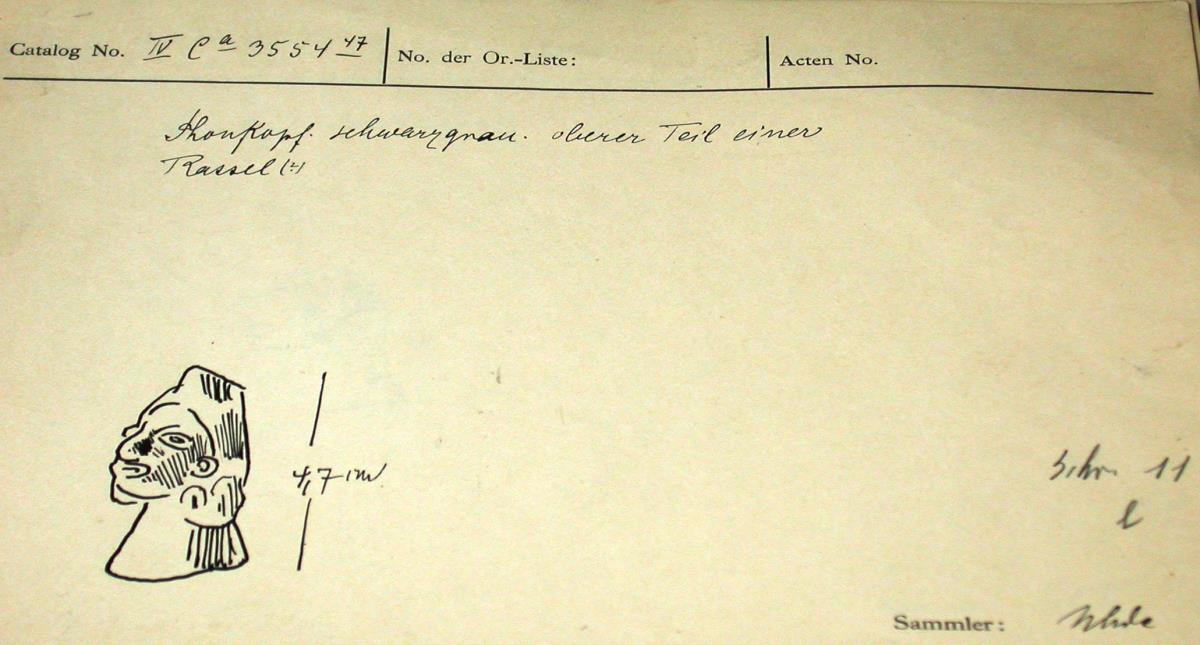 Catalog No. IV Ca 3554 47
No. der Or.-Liste:
Acten No.
Thonkopf. schwarzgrau. oberer Teil einer
Rassel (?)
4,7 cm
Schr. 11
l
Sammler: Uhde